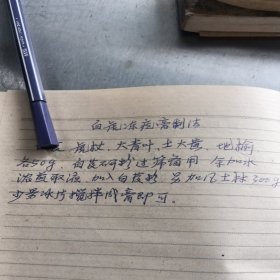 白芨冻疮膏制法
大青叶、土大黄、地榆
各50g. 白芨研粉过筛备用 余加水
浓煎取液, 加入白芨粉 另加凡士林300g
少量冰片搅拌成膏即可。